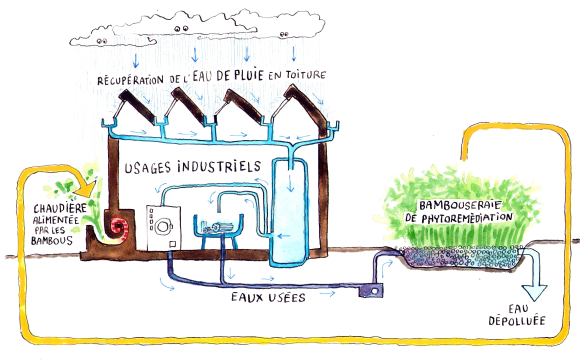 RÉCUPÉRATION DE L'EAU DE PLUIE EN TOITURE
USAGES INDUSTRIELS
CHAUDIÈRE
ALIMENTÉE
PAR LES
BAMBOUS
BAMBOUSERAIE
DE PHYTOREMÉDIATION
EAUX USÉES
EAU
DÉPOLLUÉE